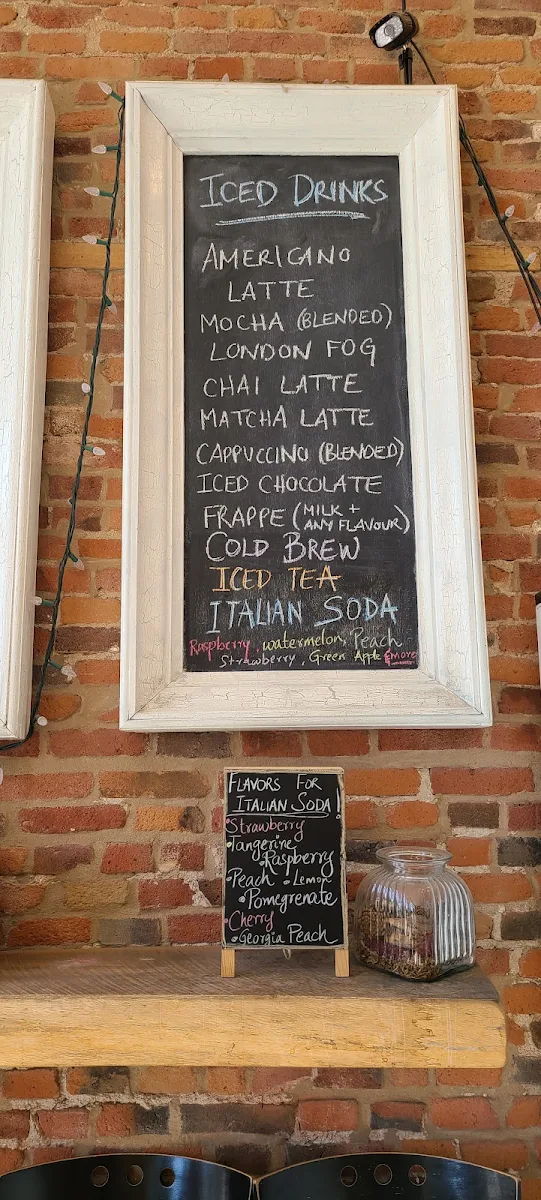 ICED DRINKS
AMERICANO
LATTE
MOCHA (BLENDED)
LONDON FOG
CHAI LATTE
MATCHA LATTE
CAPPUCCINO (BLENDED)
ICED CHOCOLATE
FRAPPE (MILK + ANY FLAVOUR)
COLD BREW
ICED TEA
ITALIAN SODA
Raspberry, watermelon, Peach
Strawberry, Green Apple & more
FLAVORS FOR
ITALIAN SODA!
•Strawberry
•Tangerine
•Raspberry
•Peach •Lemon
•Pomegrenate
•Cherry
•Georgia Peach